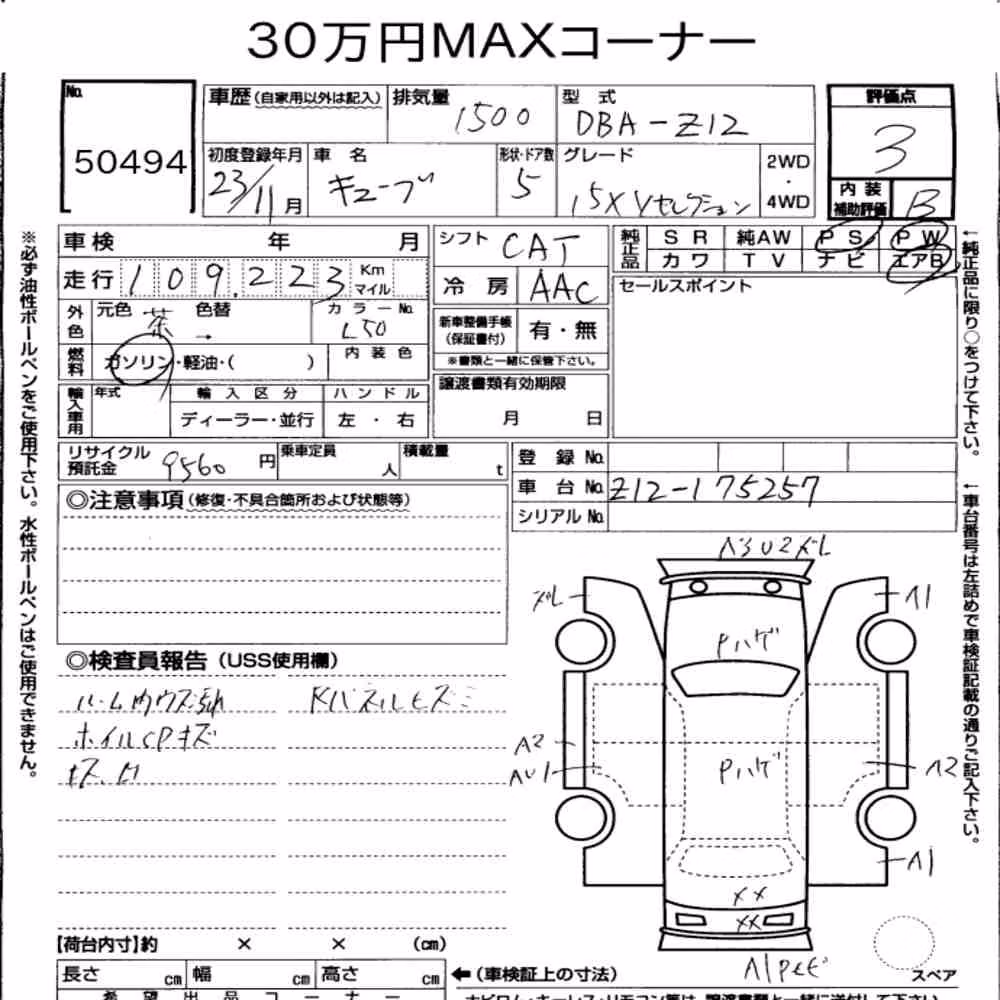 30万円MAXコーナー
No. 50494
車歴(自家用以外は記入) 排気量 1500 型式 DBA-Z12
初度登録年月 23/11月 車名 キューブ 形状・ドア数 5 グレード 15X Vセレクション 2WD・4WD
評価点 3
内装補助評価 B
車検 年 月
走行 109,223 Km マイル
外色 元色 茶 色替 → カラーNo. L50
燃料 ガソリン・軽油・( ) 内装色
輸入車用 年式 輸入区分 ハンドル
ディーラー・並行 左・右
シフト CAT
冷房 AAC
新車整備手帳(保証書付) 有・無
※書類と一緒に保管下さい。
譲渡書類有効期限
月 日
純正品 SR 純AW PS PW
カワ TV ナビ エアB
セールスポイント
リサイクル預託金 9560円 乗車定員 人 積載量 t
登録No.
車台No. Z12-175257
シリアルNo.
◎注意事項(修復・不具合箇所および状態等)
◎検査員報告(USS使用欄)
ホイルCPキズ
キズ凹
A2
A1
Pハゲ
Pハゲ
A2
A1
XX
XX
【荷台内寸】約 × × (cm)
長さ cm 幅 cm 高さ cm ←(車検証上の寸法)
スペア
希望出品コーナー
※必ず油性ボールペンをご使用下さい。水性ボールペンはご使用できません。
←純正品に限り○をつけて下さい。
←車台番号は左詰めで車検証記載の通りご記入下さい。